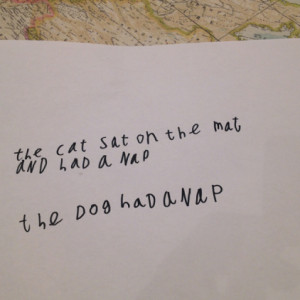 the cat sat on the mat
AND had a NaP
the DOg haD a NaP